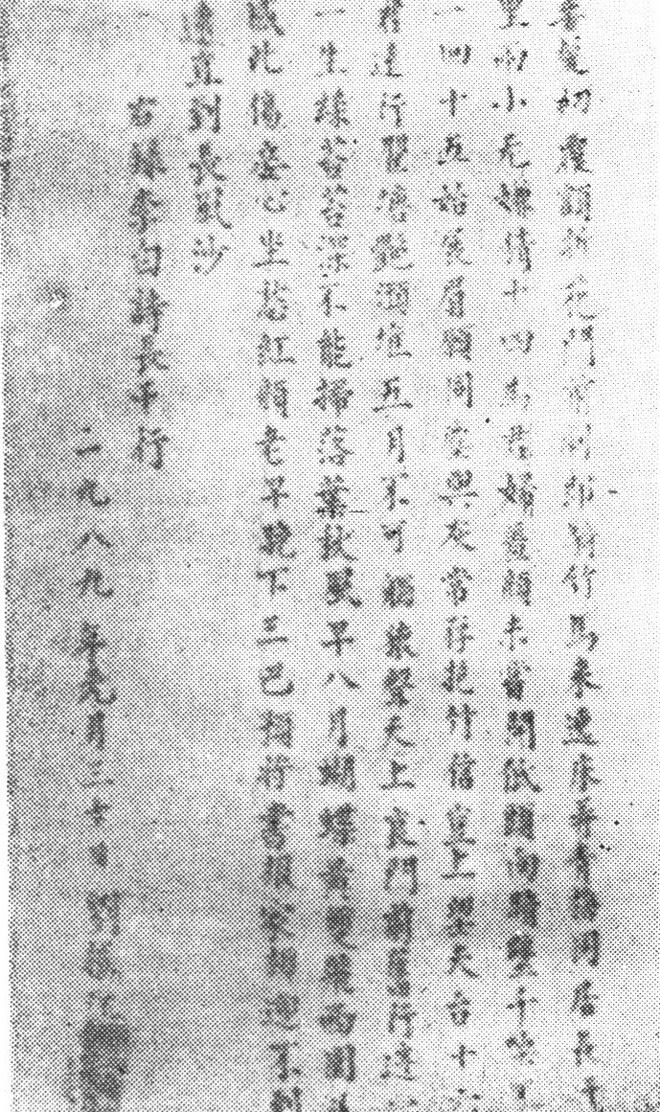 妾髮初覆額折花門前劇郎騎竹馬來遶床弄青梅同居長干
里兩小无嫌猜十四為君婦羞顏未嘗開低頭向暗壁千喚不
一回十五始展眉願同塵與灰常存抱柱信豈上望夫台十六
君遠行瞿塘灩澦堆五月不可觸猿聲天上哀門前舊行迹一
一生綠苔苔深不能掃落葉秋風早八月蝴蝶黃雙飛西園草
感此傷妾心坐愁紅顏老早晚下三巴預將書報家相迎不道
遠直到長風沙
右錄李白詩長干行
一九八九年元月三十日 劉